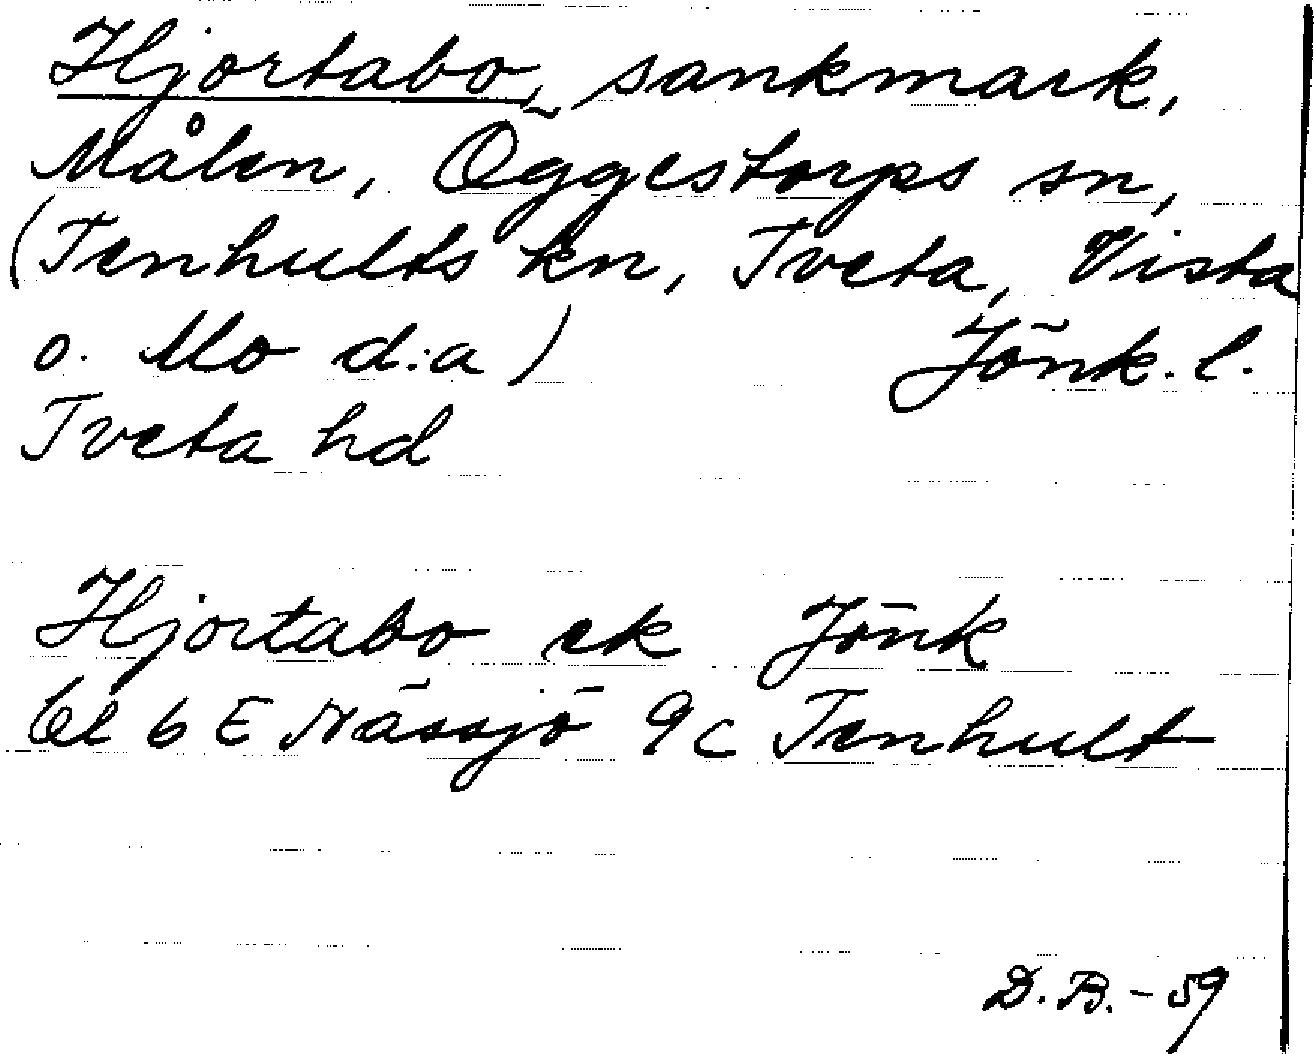 Hjortabo, sankmark,
Målen, Öggestorps sn,
(Tenhults kn, Tveta, Vista
o. Mo d:a) Jönk. l.
Tveta hd
Hjortabo ek Jönk
bl 6 E Nässjö 9c Tenhult
D.B. - 59